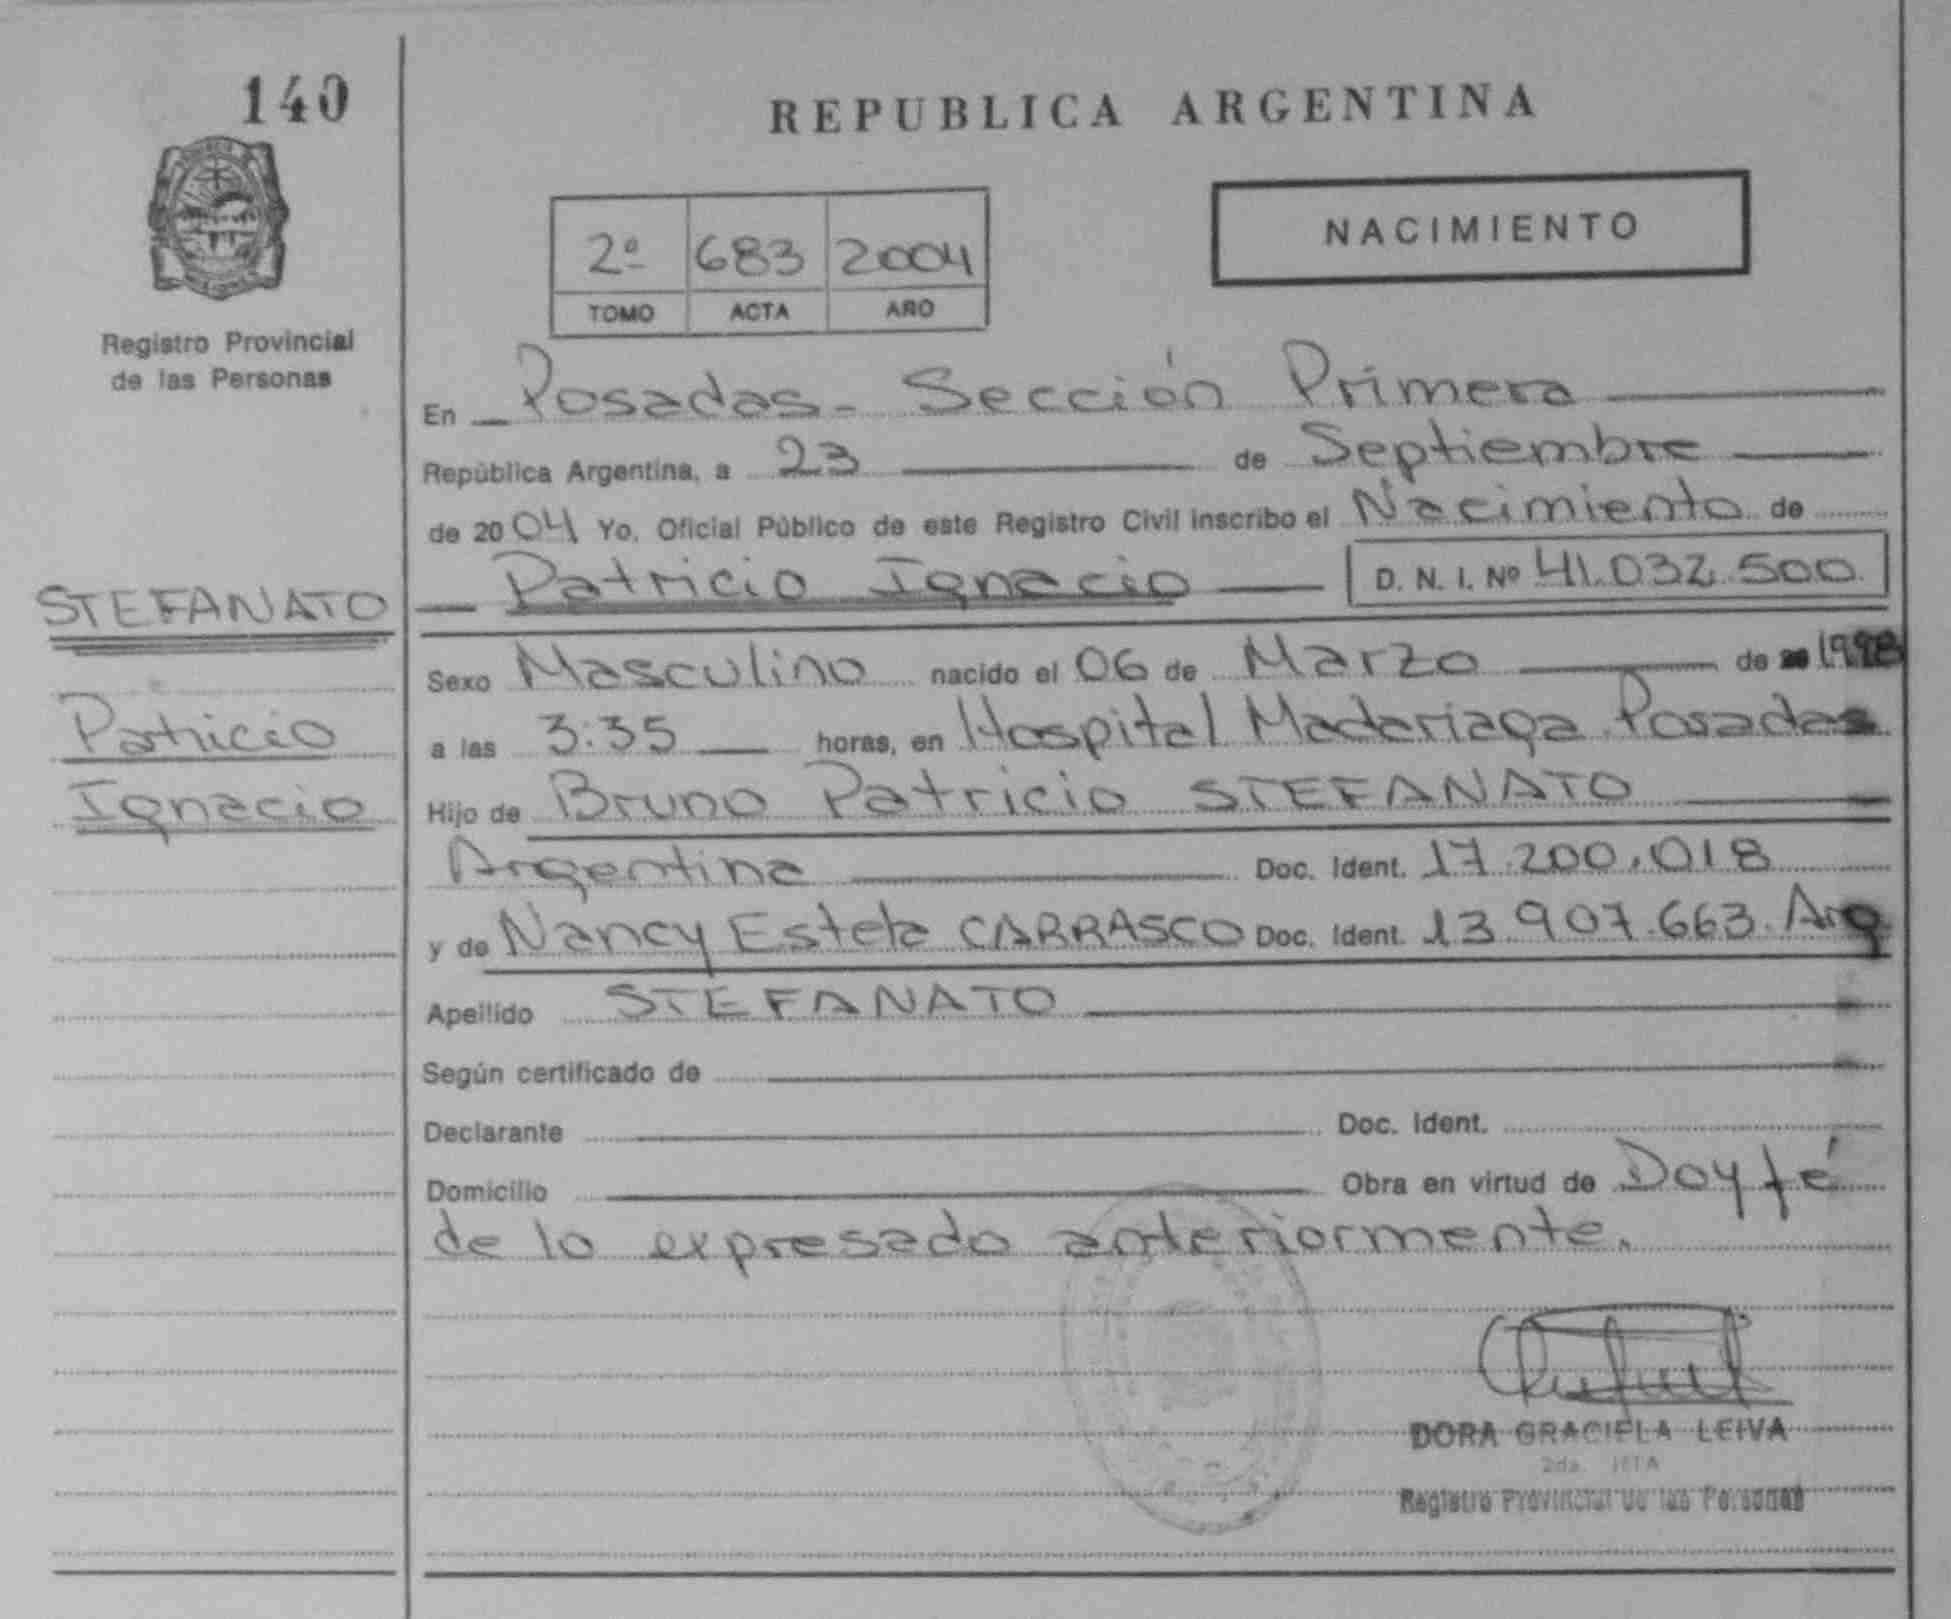 140
REPUBLICA ARGENTINA
NACIMIENTO
2º 683 2004
TOMO ACTA AÑO
Registro Provincial
de las Personas
En Posadas - Sección Primera
República Argentina, a 23 de Septiembre
de 2004 Yo, Oficial Público de este Registro Civil inscribo el Nacimiento de
Patricio Ignacio D. N. I. Nº 41.032.500.
STEFANATO
Patricio
Ignacio
Sexo Masculino nacido el 06 de Marzo de 1998
a las 3:35 horas, en Hospital Madariaga Posadas
Hijo de Bruno Patricio STEFANATO
Argentina Doc. Ident. 17.200.018
y de Nancy Estela CARRASCO Doc. Ident. 13.907.663. Arg
Apellido STEFANATO
Según certificado de
Declarante Doc. Ident.
Domicilio Obra en virtud de Doy fé
de lo expresado anteriormente.
DORA GRACIELA LEIVA
2da. JEFA
Registro Provincial de las Personas